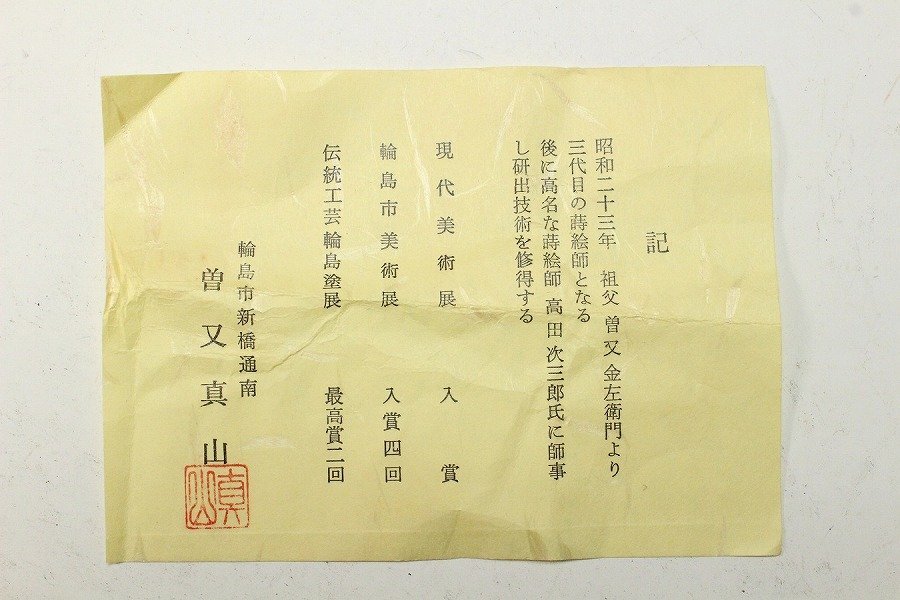 記
昭和二十三年　祖父 曽又 金左衛門より
三代目の蒔絵師となる
後に高名な蒔絵師 高田 次三郎氏に師事
し研出技術を修得する
現代美術展　入賞
輪島市美術展　入賞四回
伝統工芸輪島塗展　最高賞二回
輪島市新橋通南
曽又真山
真山